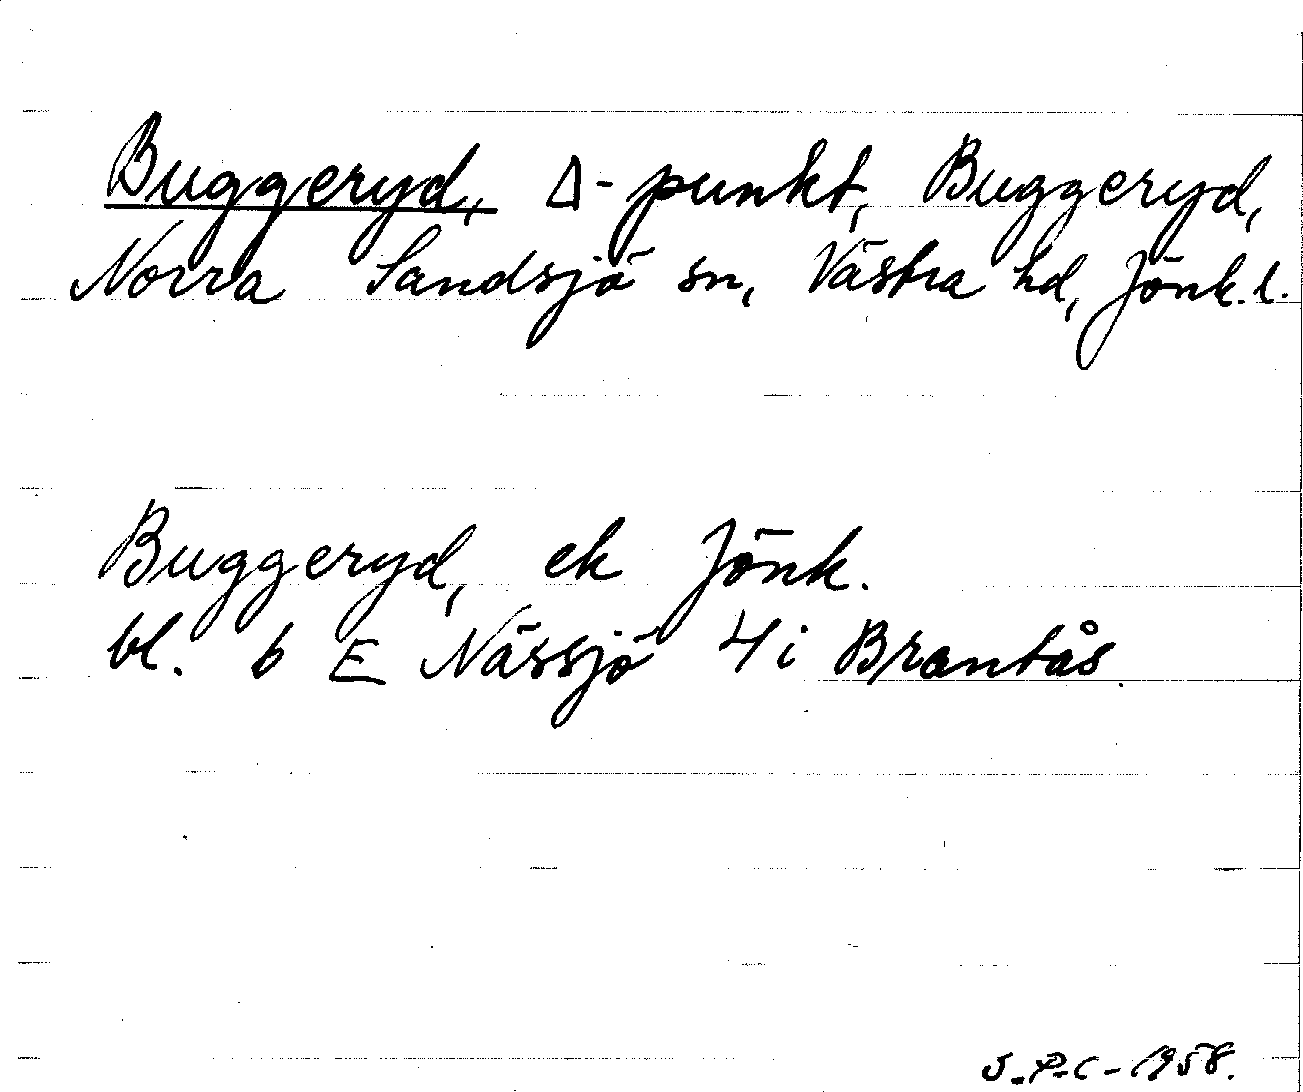 Buggeryd, Δ-punkt, Buggeryd,
Norra Sandsjö sn, Västra hd, Jönk. l.
Buggeryd, ek Jönk.
bl. 6 E Nässjö 4i Brantås
J-P-C-1958.